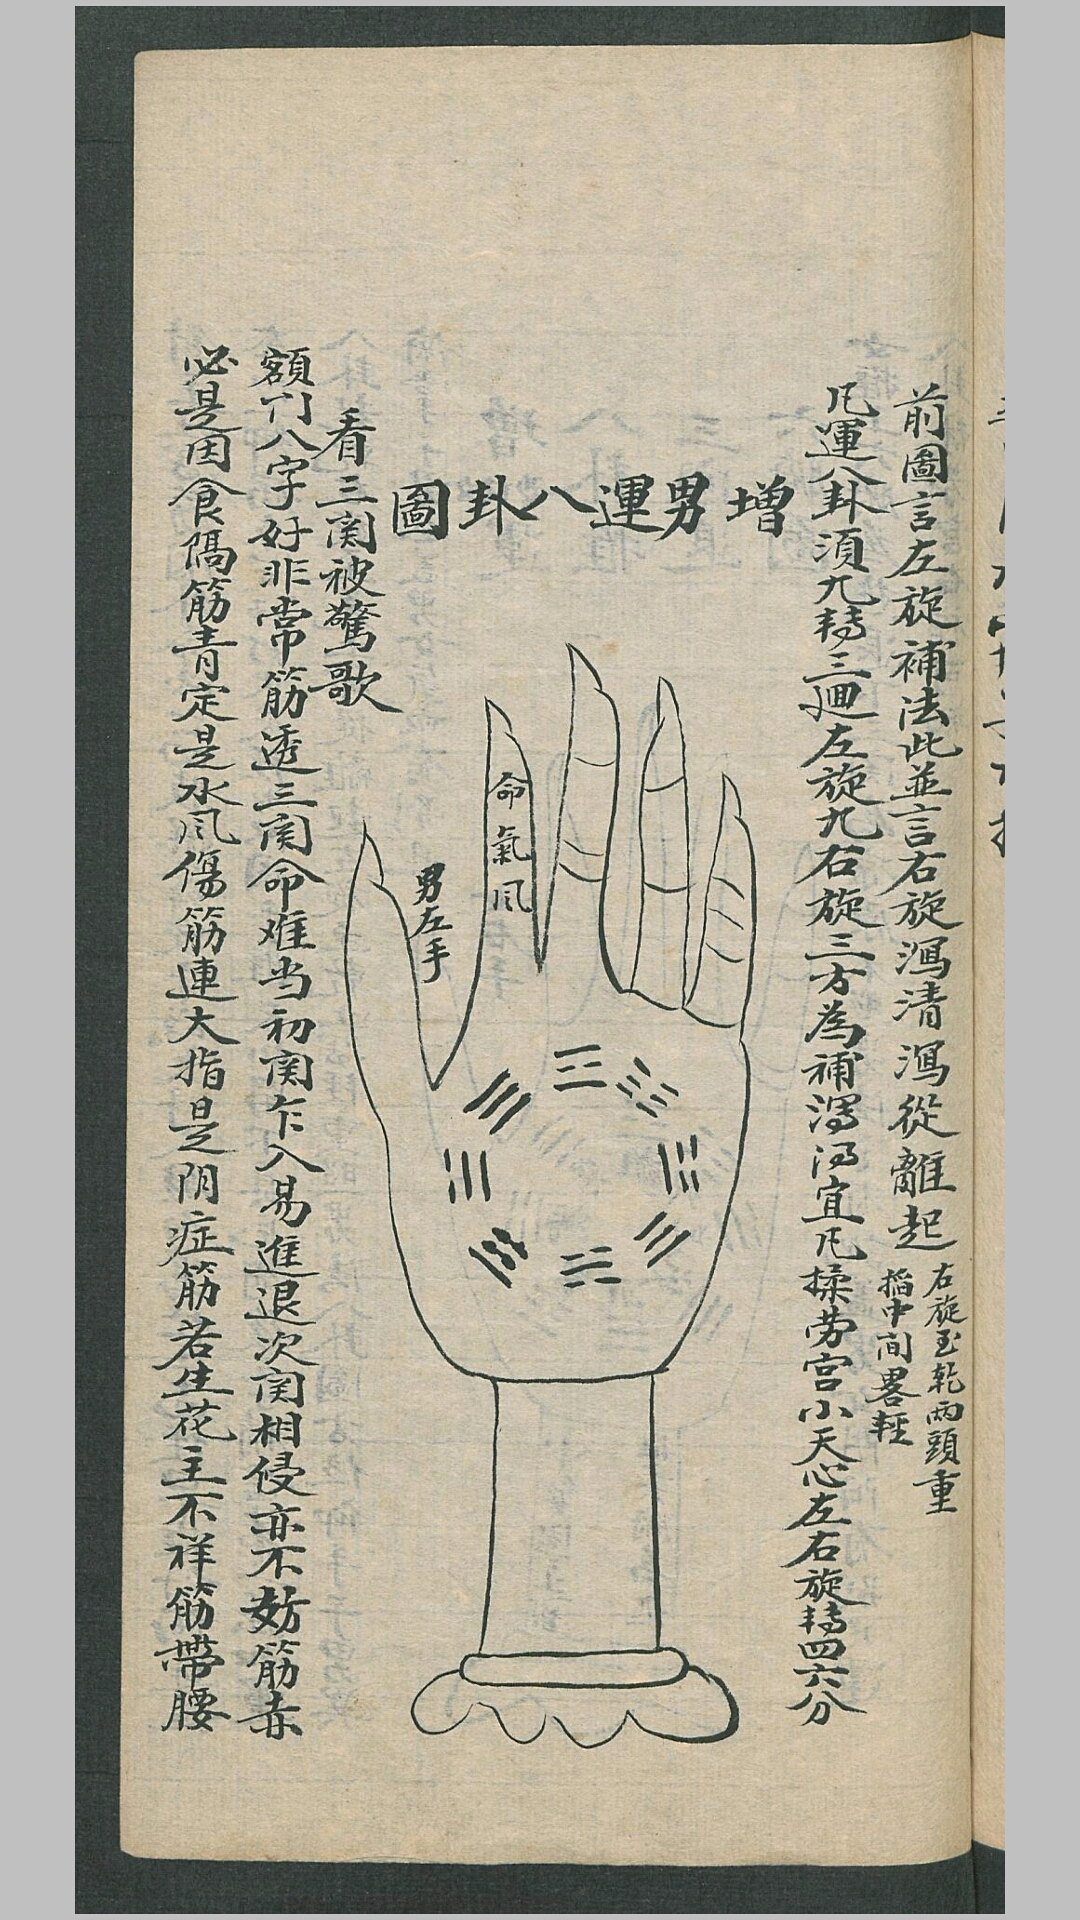 前圖言左旋補法此並言右旋瀉清瀉從離起
右旋至乾兩頭重
搯中间畧輕
凡運八卦須九轉三廻左旋九右旋三方為補瀉得宜凡揉劳宫小天心左右旋轉四六分
增男運八卦圖
命氣风
男左手
看三関被驚歌
額门八字好非常筋透三関命难当初関乍入易進退次関相侵亦不妨筋赤
必是因食隔筋青定是水风傷筋連大指是阴症筋若生花主不祥筋帶腰